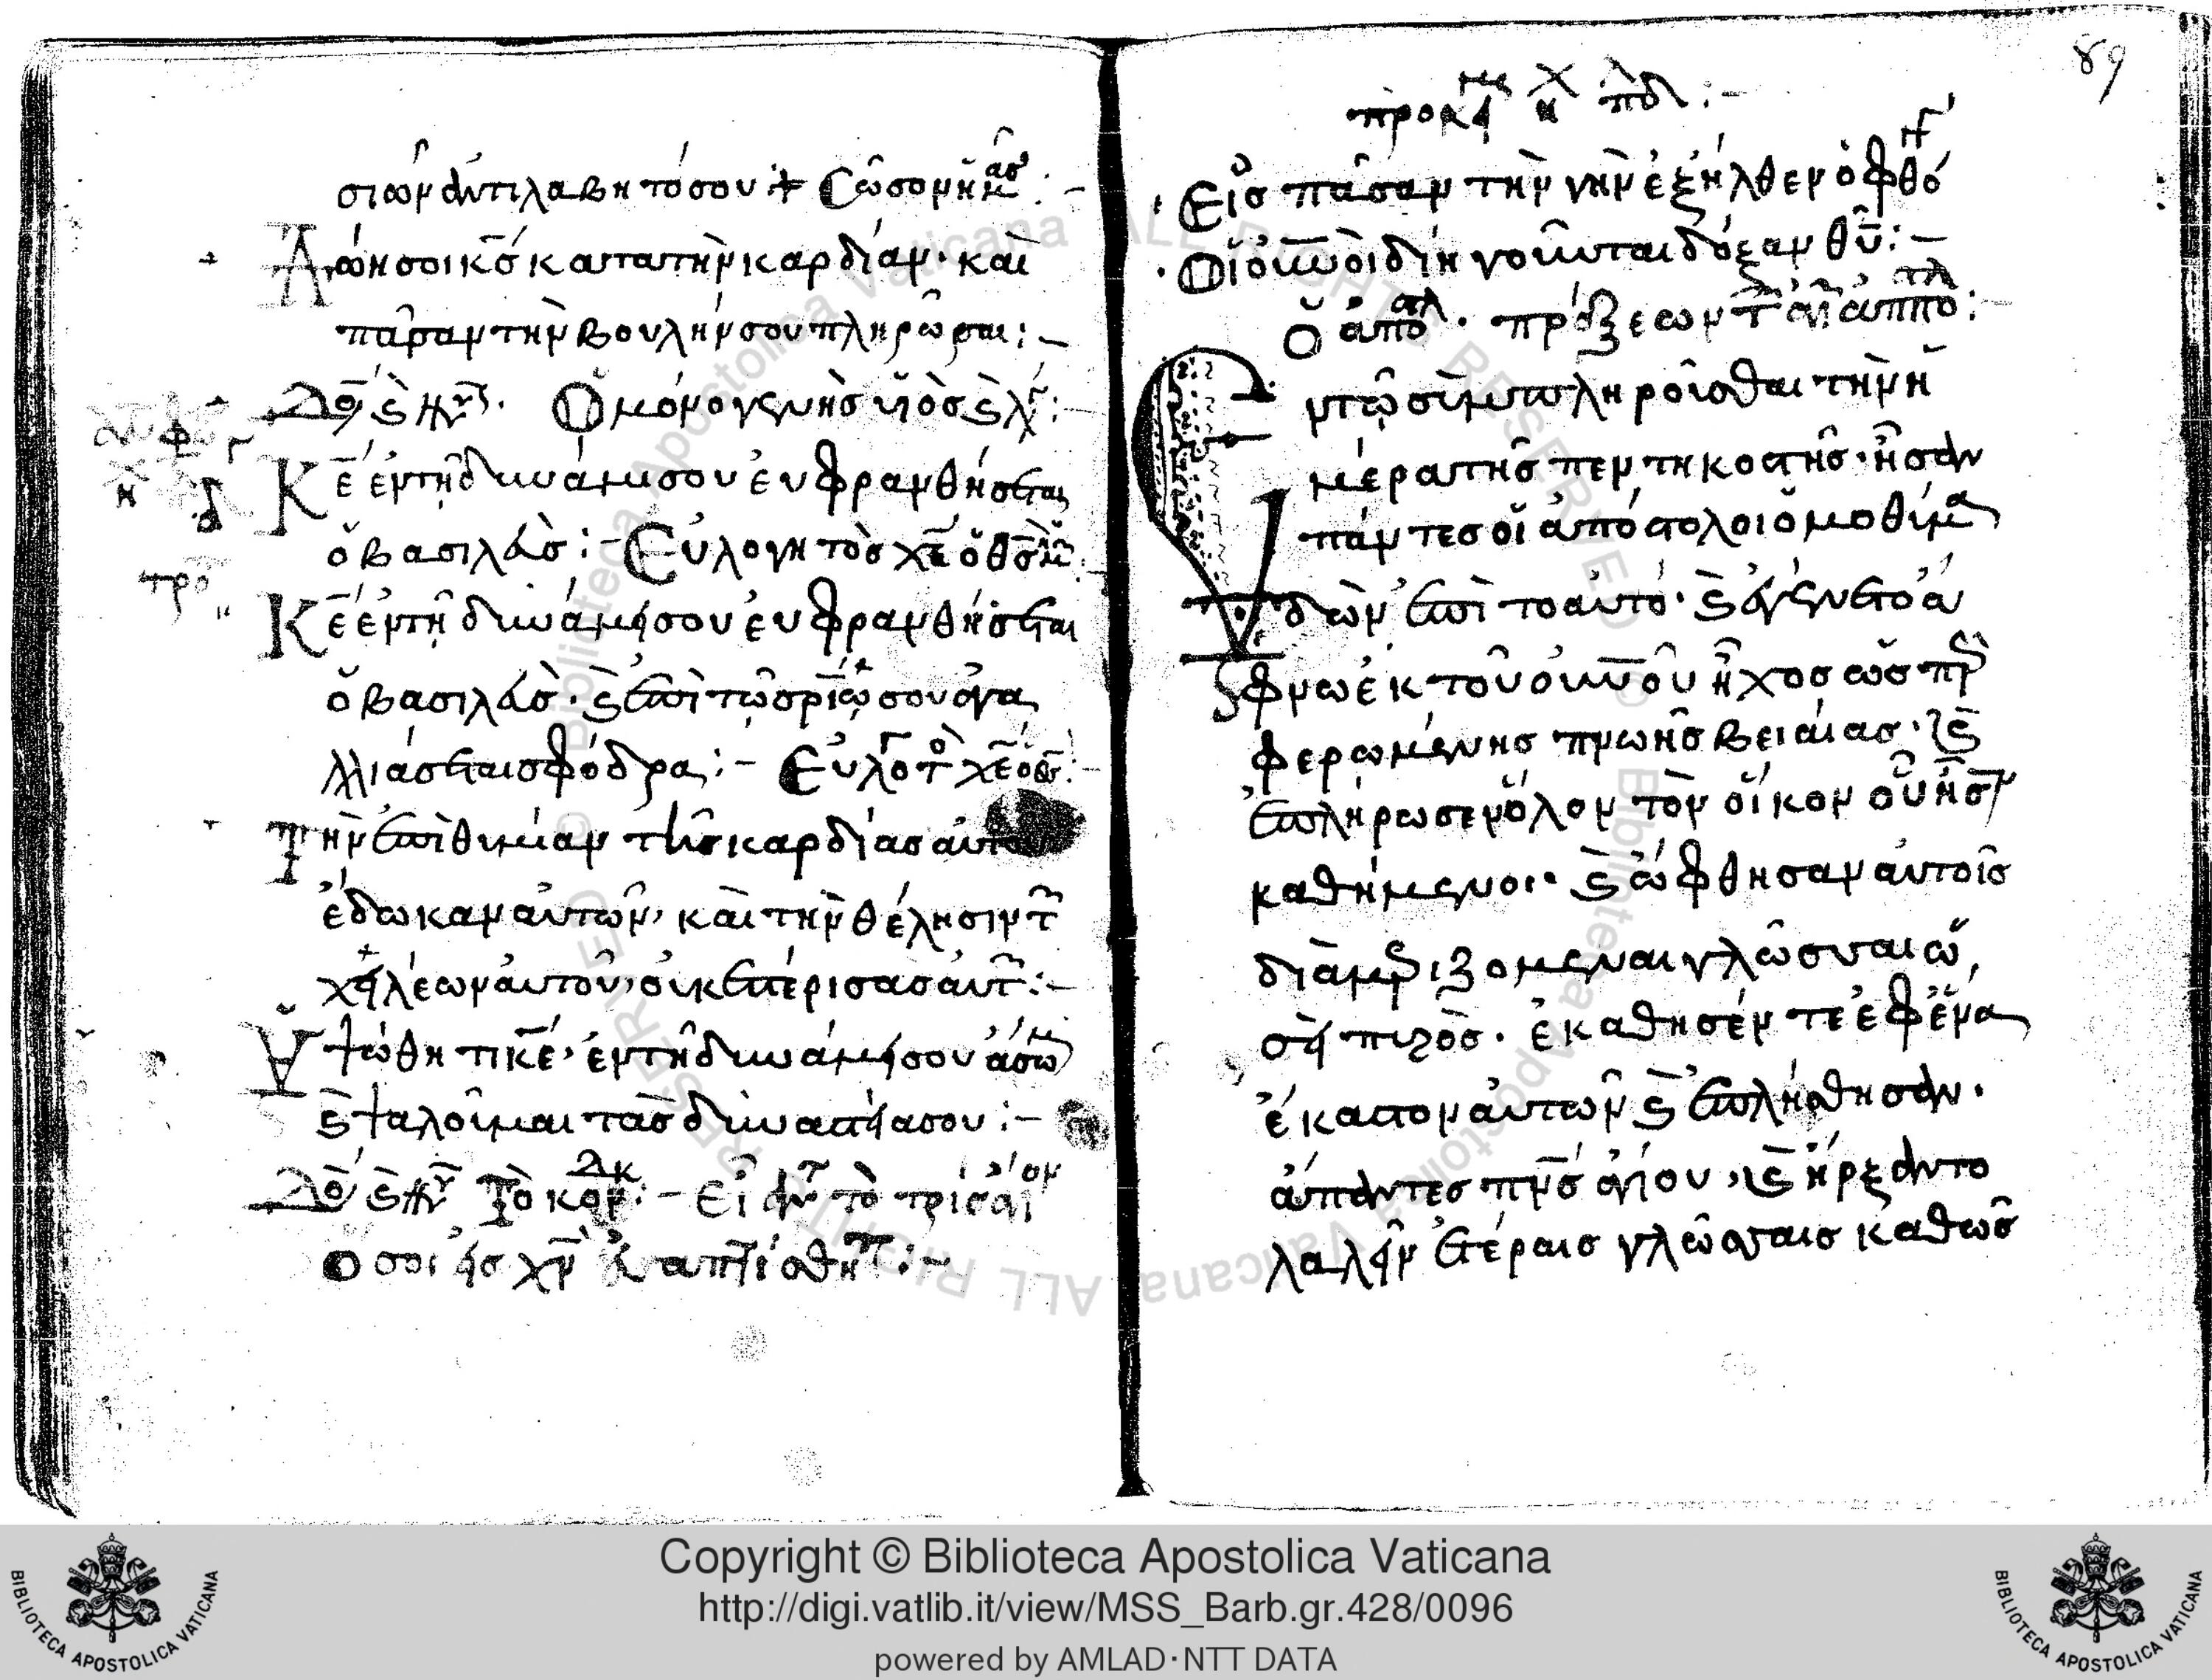 σιὼν ἀντιλάβητό σου + Σῶσον ἡμᾶς :-
Δώη σοι κς κατὰ τὴν καρδίαν· καὶ
πᾶσαν τὴν βουλήν σου πληρῶσαι :-
Δό(ξα) ϛ νῦν. Ὁ μονογενὴς υἱὸς ϛ λγ :-
Κε ἐν τῇ δυνάμει σου εὐφρανθήσεται
ὁ βασιλεὺς :- Εὐλογητὸς χε ὁ θς ἡμ
Κε ἐν τῇ δυνάμει σου εὐφρανθήσεται
ὁ βασιλεὺς· ϛ ἐπὶ τῶ σρίω σου ἀγα
λλιάσεται σφόδρα :- Εὐλοτ χε ὁ θς :-
Τὴν ἐπιθυμίαν τῆς καρδίας αὐτοῦ
ἔδωκαν αὐτῶν, καὶ τὴν θέλησιν τ
χειλέων αὐτοῦ, οὐκ ἐστέρισας αὐτ :-
Ὑψώθητι κε, ἐν τῇ δυνάμει σου ἄσω
ϛ ψαλοῦμαι τὰς δυναστείας σου :-
Δό ϛ νῦν Τὸ κον :- Εἰ ἀντ τὸ τρισάγιον
Ὅσοι εἰς χν ἐβαπτίσθητ :-
89
προκεί μενον ἦχ πλ :-
Εἰς πᾶσαν τὴν γῆν ἐξῆλθεν ὁ φθό
Οἱ οὐνοὶ διηγοῦνται δόξαν θυ :-
Ὁ ἀπόστλ. πράξεων τ ἁγί ἀπποστλ :-
Εντῶ συμπληροῖσθαι τὴν ἡ
μέρα τῆς πεντηκοστῆς· ἦσαν
πάντες οἱ ἀπόστολοι ὁμοθυμα
δὼν ἐπὶ τοαὐτό· ϛ ἐγένετο ἄ
φνω ἐκ τοῦ οὐνοῦ ἦχος ὥσπερ
φερωμένης πνωῆς βειαίας· ϛ
ἐπλήρωσεν ὅλον τὸν οἶκον οὗ ἦσαν
καθήμενοι· ϛ ὤφθησαν αὐτοῖς
διαμεριζομεναι γλῶσσαι ὡ
σεὶ πυρὸς. ἐκάθησέν τε ἐφ ἕνα
ἕκαστον αὐτῶν ϛ ἐπλήσθησαν.
ἅπαντες πνς ἁγίου, ϛ ἤρξαντο
λαλεῖν ἑτέραις γλώσσαις καθὼς
Copyright © Biblioteca Apostolica Vaticana
http://digi.vatlib.it/view/MSS_Barb.gr.428/0096
powered by AMLAD·NTT DATA
BIBLIOTECA APOSTOLICA VATICANA
BIBLIOTECA APOSTOLICA VATICANA